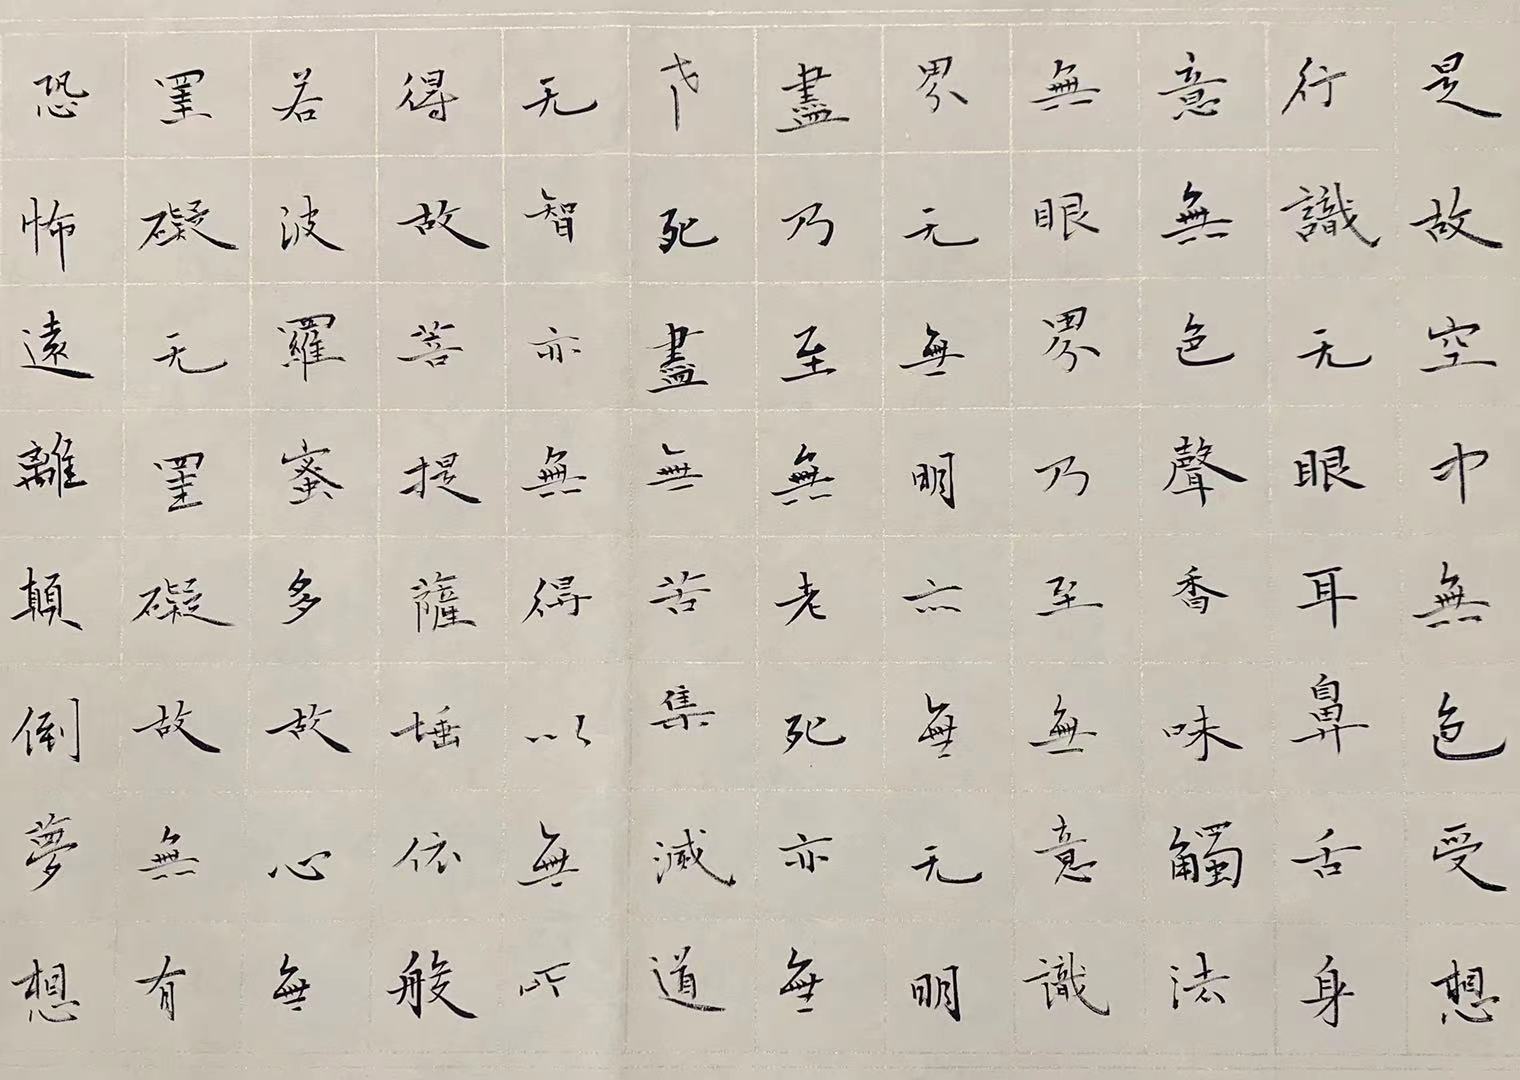 是故空中無色受想
行識无眼耳鼻舌身
意無色聲香味觸法
無眼界乃至無意識
界无無明亦無无明
盡乃至無老死亦無
老死盡無苦集滅道
无智亦無得以無所
得故菩提薩埵依般
若波羅蜜多故心無
罣礙无罣礙故無有
恐怖遠離顛倒夢想